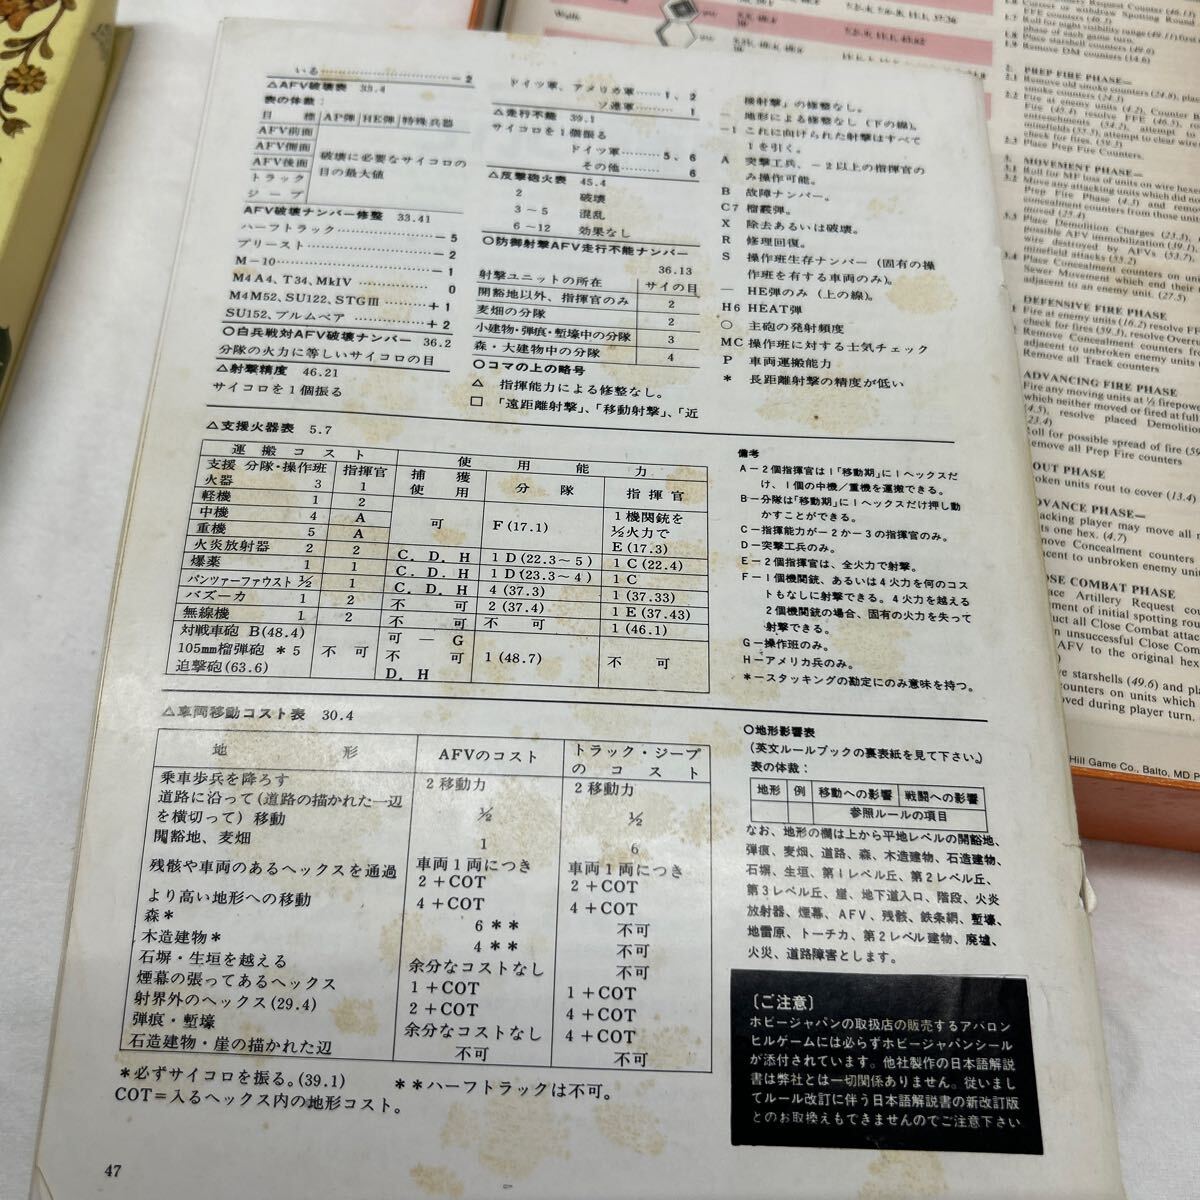 いる……………………………－2
△AFV破壊表 33.4
表の体裁：
目 標 AP弾 HE弾 特殊兵器
AFV前面
AFV側面
AFV後面
トラック
ジープ
破壊に必要なサイコロの
目の最大値
AFV破壊ナンバー修整 33.41
ハーフトラック……………－5
プリースト…………………－2
M－10………………………－1
M4A4、T34、MkIV …………… 0
M4M52、SU122、STGⅢ………＋1
SU152、ブルムベア …………＋2
○白兵戦対AFV破壊ナンバー 36.2
分隊の火力に等しいサイコロの目
△射撃精度 46.21
サイコロを1個振る
ドイツ軍、アメリカ軍……1、2
ソ連軍…………… 1
△走行不能 39.1
サイコロを1個振る
ドイツ軍………5、6
その他………… 6
△反撃砲火表 45.4
2 破壊
3～5 混乱
6～12 効果なし
○防御射撃AFV走行不能ナンバー
36.13
射撃ユニットの所在 サイの目
開豁地以外、指揮官のみ 2
麦畑の分隊 2
小建物・弾痕・塹壕中の分隊 3
森・大建物中の分隊 4
○コマの上の略号
△ 指揮能力による修整なし。
□ 「遠距離射撃」、「移動射撃」、「近
接射撃」の修整なし。
― 地形による修整なし（下の線）。
－1 これに向けられた射撃はすべて
1を引く。
A 突撃工兵、－2以上の指揮官の
み操作可能。
B 故障ナンバー。
C7 榴霰弾。
X 除去あるいは破壊。
R 修理回復。
S 操作班生存ナンバー（固有の操
作班を有する車両のみ）。
― HE弾のみ（上の線）。
H6 HEAT弾
○ 主砲の発射頻度
MC 操作班に対する士気チェック
P 車両運搬能力
＊ 長距離射撃の精度が低い
△支援火器表 5.7
運搬コスト 使用能力
支援火器 分隊・操作班 指揮官 捕獲使用 分隊 指揮官
火器 3 1
軽機 1 2
中機 4 A
重機 5 A
可 F(17.1) 1機関銃を½火力でE(17.3)
火炎放射器 2 2 C．D．H 1D(22.3～5) 1C(22.4)
爆薬 1 1 C．D．H 1D(23.3～4) 1C
パンツァーファウスト ½ 1 C．D．H 4(37.3) 1(37.33)
バズーカ 1 2 不可 2(37.4) 1E(37.43)
無線機 1 2 不可 不可 1(46.1)
対戦車砲 B(48.4) 可－G
105mm榴弾砲 ＊5 不可 不可 1(48.7) 不可
追撃砲(63.6) D．H
備考
A－2個指揮官は1「移動期」に1ヘックスだ
け、1個の中機／重機を運搬できる。
B－分隊は「移動期」に1ヘックスだけ押し動
かすことができる。
C－指揮能力が－2か－3の指揮官のみ。
D－突撃工兵のみ。
E－2個指揮官は、全火力で射撃。
F－1個機関銃、あるいは4火力を何のコス
トもなしに射撃できる。4火力を越える
2個機関銃の場合、固有の火力を失って
射撃できる。
G－操作班のみ。
H－アメリカ兵のみ。
＊－スタッキングの勘定にのみ意味を持つ。
△車両移動コスト表 30.4
地 形 AFVのコスト トラック・ジープのコスト
乗車歩兵を降ろす 2移動力 2移動力
道路に沿って（道路の描かれた一辺
を横切って）移動 ½ ½
開豁地、麦畑 1 6
残骸や車両のあるヘックスを通過 車両1両につき2＋COT 車両1両につき2＋COT
より高い地形への移動 4＋COT 4＋COT
森＊ 6＊＊ 不可
木造建物＊ 4＊＊ 不可
石塀・生垣を越える 余分なコストなし 不可
煙幕の張ってあるヘックス 1＋COT 1＋COT
射界外のヘックス(29.4) 2＋COT 4＋COT
弾痕・塹壕 余分なコストなし 4＋COT
石造建物・崖の描かれた辺 不可 不可
＊必ずサイコロを振る。(39.1) ＊＊ハーフトラックは不可。
COT＝入るヘックス内の地形コスト。
○地形影響表
（英文ルールブックの裏表紙を見て下さい。）
表の体裁：
地形 例 移動への影響 戦闘への影響
参照ルールの項目
なお、地形の欄は上から平地レベルの開豁地、
弾痕、麦畑、道路、森、木造建物、石造建物、
石塀、生垣、第1レベル丘、第2レベル丘、
第3レベル丘、崖、地下道入口、階段、火炎
放射器、煙幕、AFV、残骸、鉄条網、塹壕、
地雷原、トーチカ、第2レベル建物、廃墟、
火災、道路障害とします。
〔ご注意〕
ホビージャパンの取扱店の販売するアバロン
ヒルゲームには必らずホビージャパンシール
が添付されています。他社製作の日本語解説
書は弊社とは一切関係ありません。従いまし
てルール改訂に伴う日本語解説書の新改訂版
とのお取換えもできませんのでご注意下さい
47
Walls
1.8 Place starshell counters (49.6)
1.9 Remove DM counters (14.6)
PREP FIRE PHASE—
MOVEMENT PHASE—
DEFENSIVE FIRE PHASE
ADVANCING FIRE PHASE
OUT PHASE
VANCE PHASE—
OSE COMBAT PHASE
Hill Game Co., Balto, MD